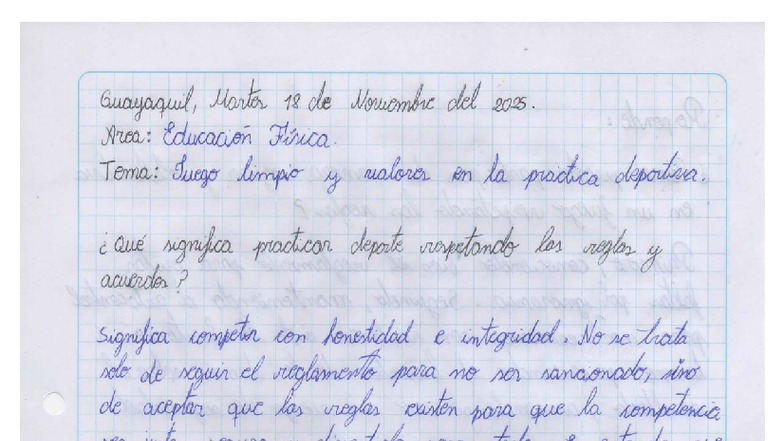 Guayaquil, Martes 18 de Noviembre del 2025.
Area: Educación Física.
Tema: Juego limpio y valores en la práctica deportiva.
¿Qué significa practicar deporte respetando las reglas y
acuerdos?
Significa competir con honestidad e integridad. No se trata
solo de seguir el reglamento para no ser sancionado, sino
de aceptar que las reglas existen para que la competencia